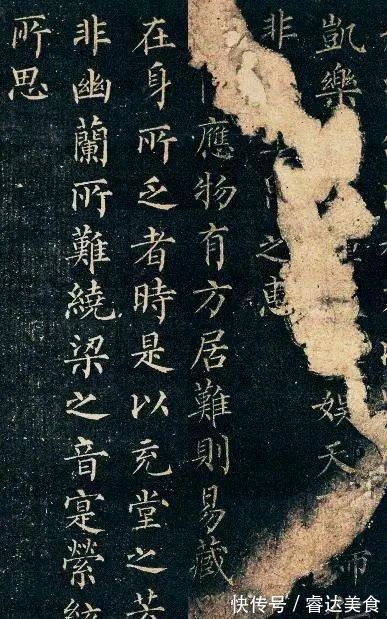 凱樂娛天
非之惠
應物有方居難則易藏
在身所乏者時是以充堂之芳
非幽蘭所難繞梁之音寔縈絃
所思
快传号 / 睿达美食